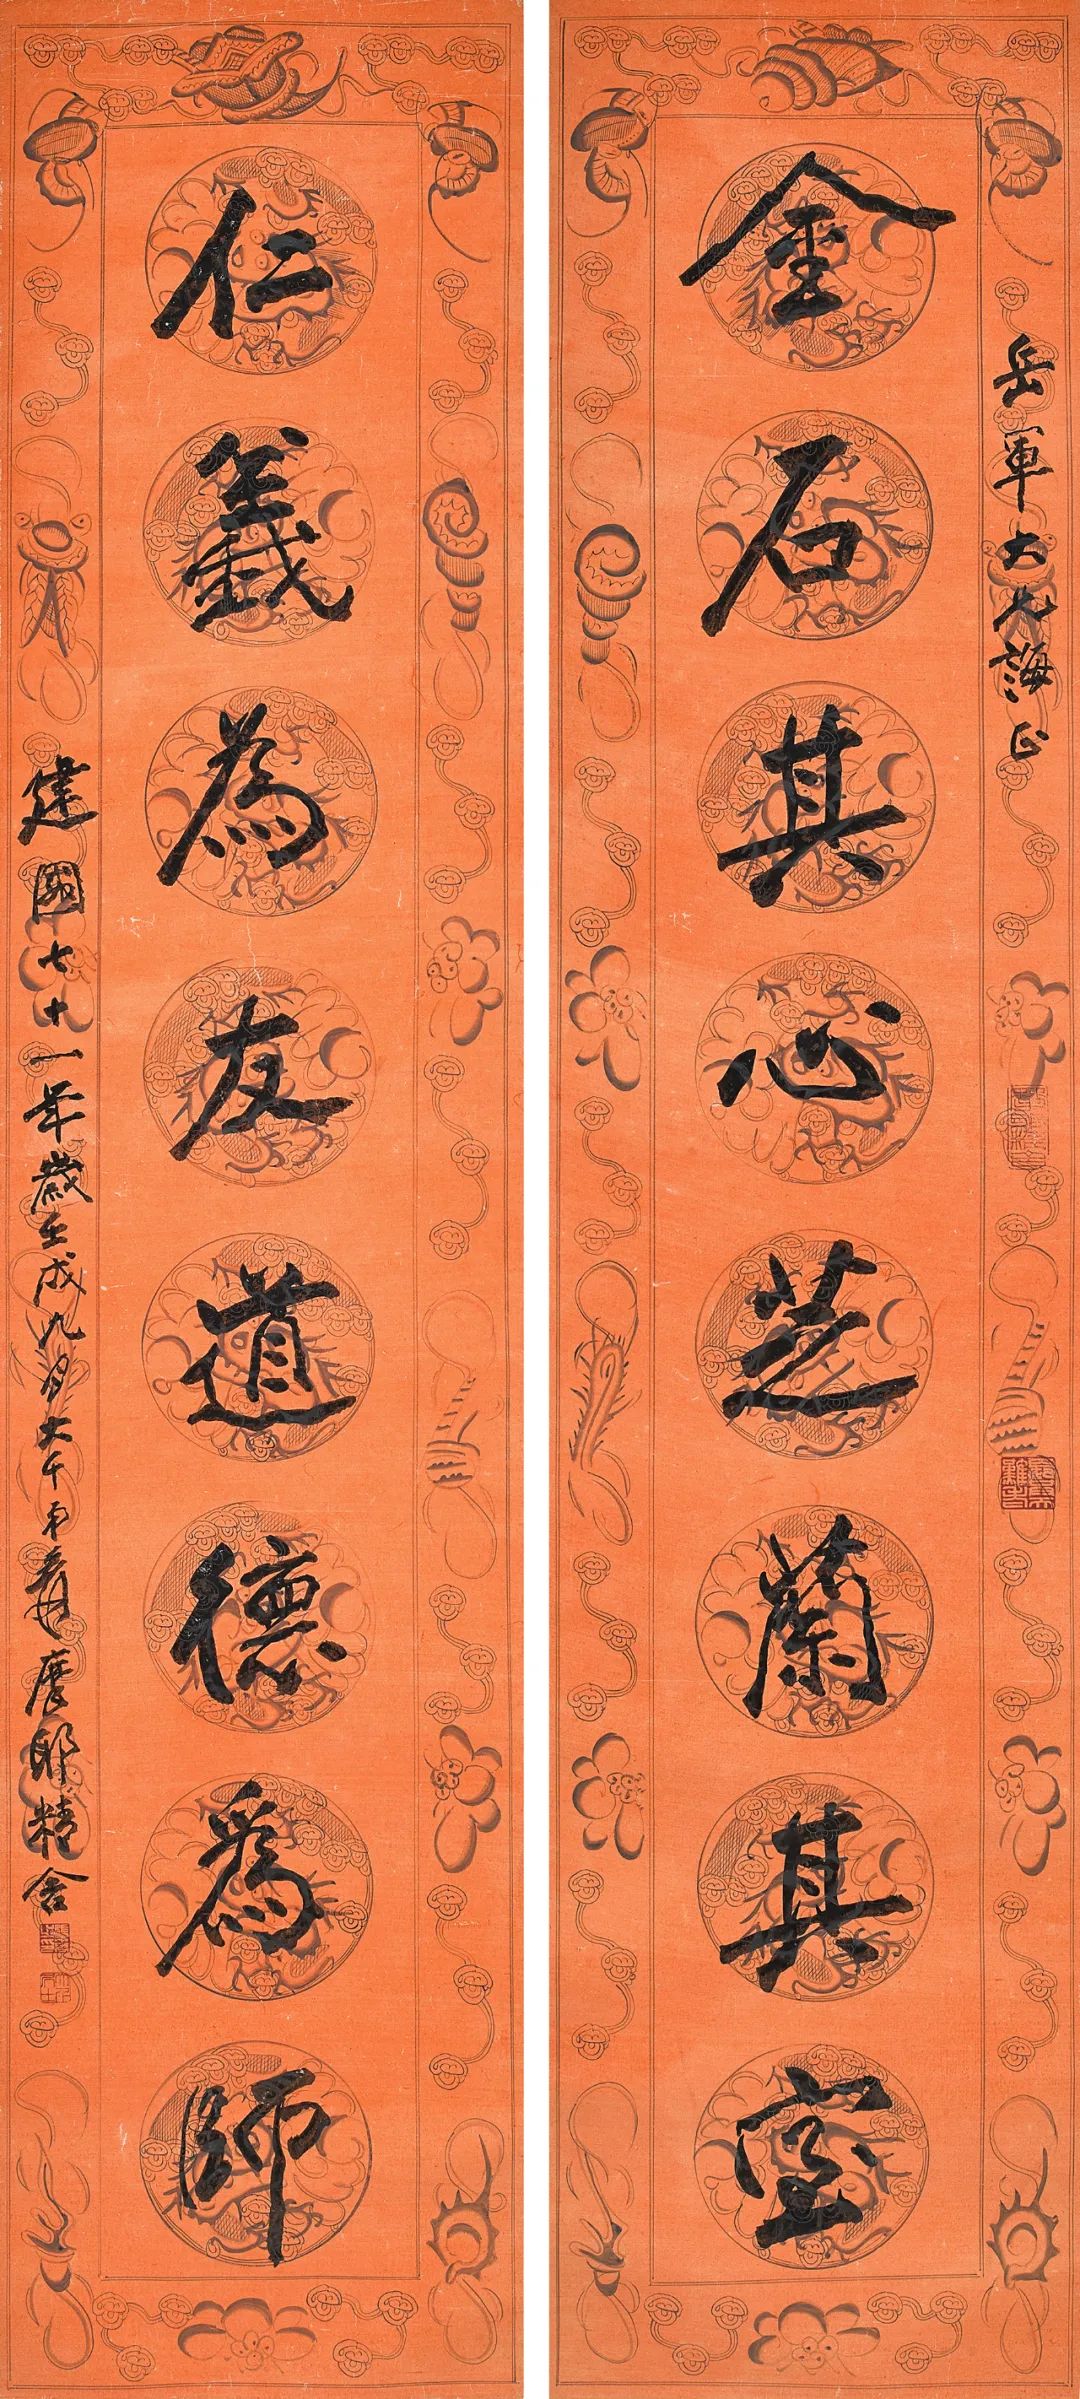 岳軍大兄誨正
金石其心芝蘭其室
仁義為友道德為師
建國七十一年歲壬戌九月大千弟爰摩耶精舍